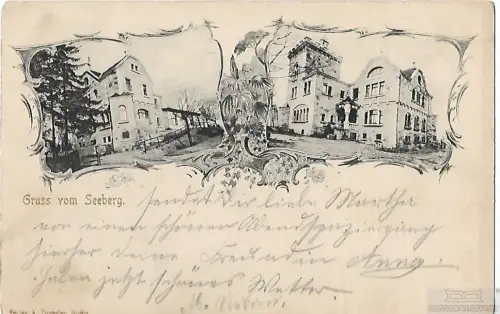 Gruss vom Seeberg.
sendet der liebe Martha
von einem schönen Abendspaziergang
hierher deine Freundin Anna.
Haben jetzt schönes Wetter.
Verlag v.